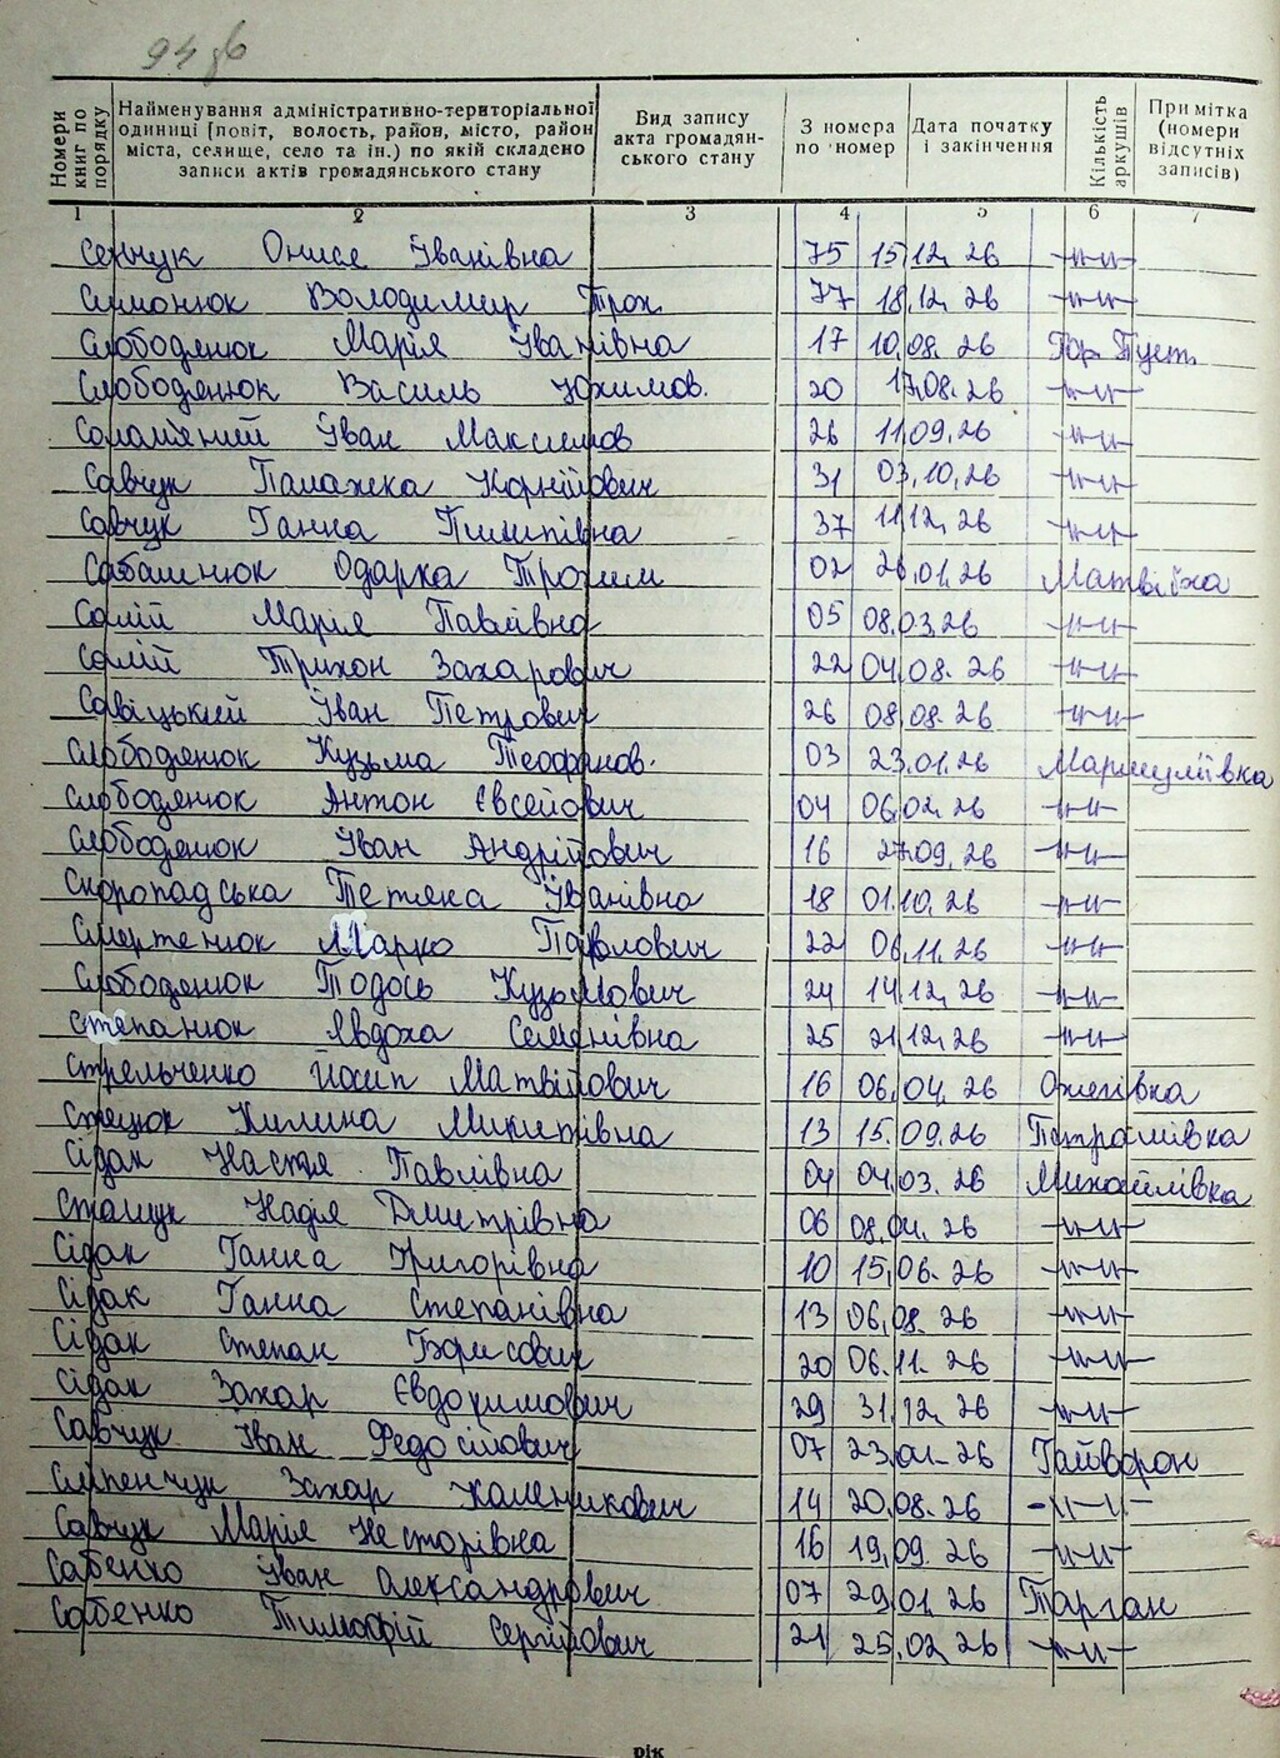 94 зв
Номери книг по порядку
Найменування адміністративно-територіальної одиниці [повіт, волость, район, місто, район міста, селище, село та ін.) по якій складено записи актів громадянського стану
Вид запису акта громадянського стану
З номера по номер
Дата початку і закінчення
Кількість аркушів
Примітка (номери відсутніх записів)
1 2 3 4 5 6 7
Сенчук Онися Іванівна 75 15.12.26 -//-//-
Симонюк Володимир Трох. 77 18.12.26 -//-//-
Слободенюк Марія Іванівна 17 10.08.26 Гор. Пуст.
Слободенюк Василь Юхимов. 20 17.08.26 -//-//-
Солом'яний Іван Максимов 26 11.09.26 -//-//-
Савчук Палажка Корнійович 31 03.10.26 -//-//-
Савчук Ганна Пилипівна 37 11.12.26 -//-//-
Сабашнюк Одарка Трохим 02 26.01.26 Матвіїха
Салій Марія Павлівна 05 08.03.26 -//-//-
Салій Трихон Захарович 22 04.08.26 -//-//-
Савіцький Іван Петрович 26 08.08.26 -//-//-
Слободенюк Кузьма Теофанов. 03 23.01.26 Марщуліївка
Слободенюк Антон Євсейович 04 06.02.26 -//-//-
Слободенюк Іван Андрійович 16 27.09.26 -//-//-
Скоропадська Тетяна Іванівна 18 01.10.26 -//-//-
Смертенюк Марко Павлович 22 06.11.26 -//-//-
Слободенюк Тодось Кузьмович 24 14.12.26 -//-//-
Степанюк Явдоха Семенівна 25 21.12.26 -//-//-
Стрельченко Йосип Матвійович 16 06.04.26 Ожегівка
Стецюк Килина Микитівна 13 15.09.26 Петрашівка
Сідак Настя Павлівна 04 04.03.26 Михайлівка
Сташук Надія Дмитрівна 06 08.04.26 -//-//-
Сідак Ганна Григорівна 10 15.06.26 -//-//-
Сідак Ганна Степанівна 13 06.08.26 -//-//-
Сідак Степан Борисович 20 06.11.26 -//-//-
Сідак Захар Євдокимович 29 31.12.26 -//-//-
Савчук Іван Федосійович 07 23.01.26 Гайворон
Сліпенчук Захар Каленикович 14 20.08.26 -//-//-
Савчук Марія Несторівна 16 19.09.26 -//-//-
Сабенко Іван Олександрович 07 29.01.26 Тарган
Сабенко Тимофій Сергійович 21 25.02.26 -//-//-
рік